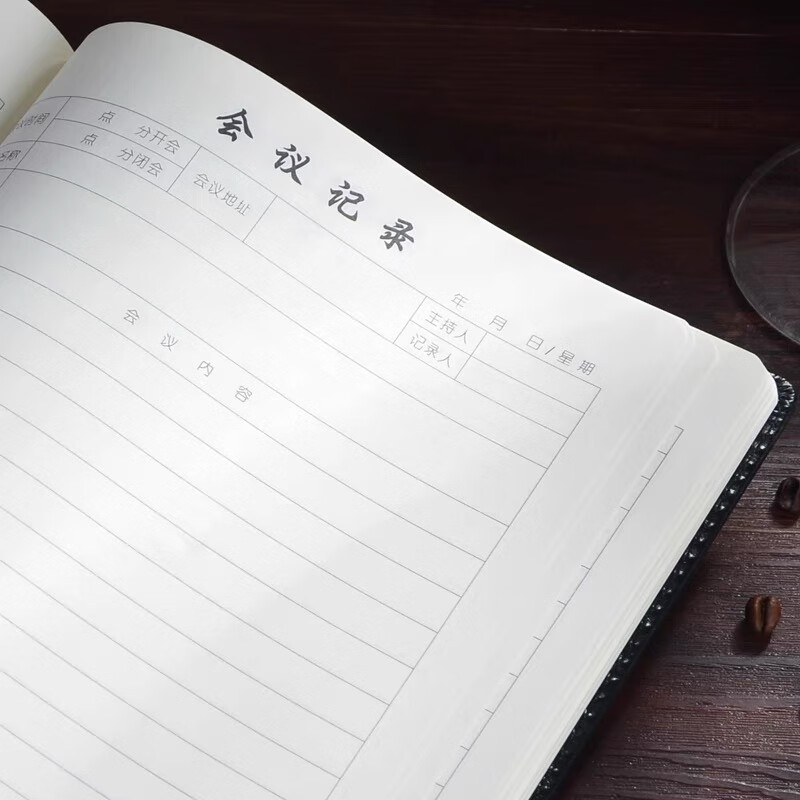 会议记录
年 月 日/星期
点 分开会 会议地址 主持人
点 分闭会 记录人
会议内容